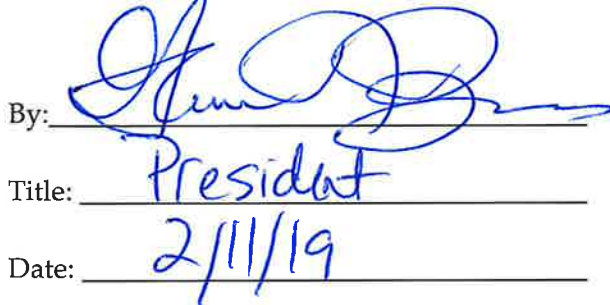 By:
Title: President
Date: 2/11/19